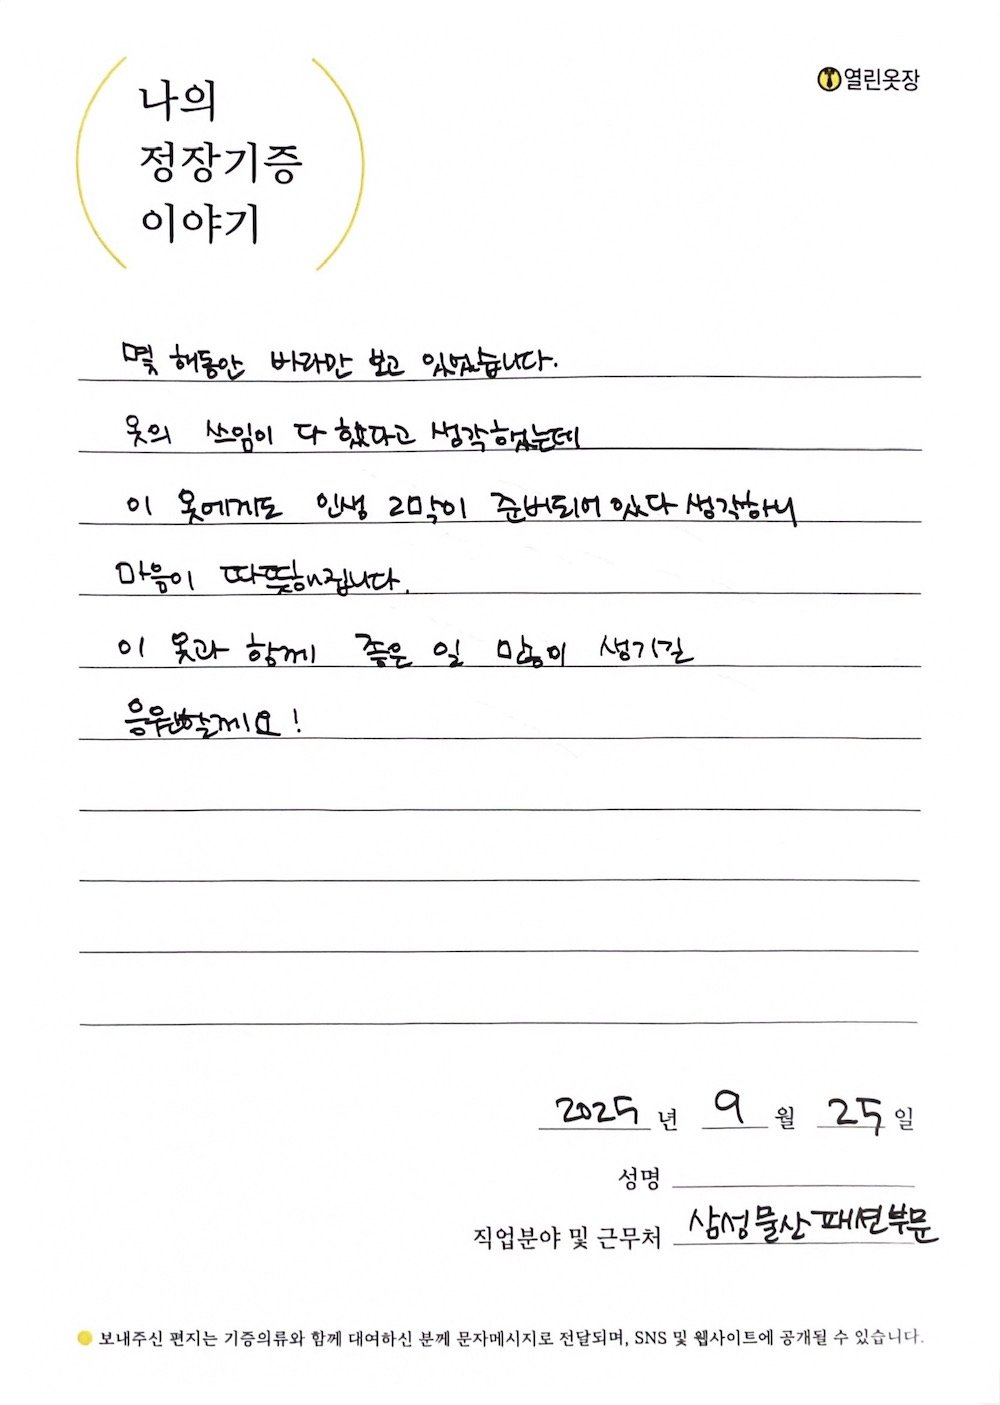 나의
정장기증
이야기
열린옷장
몇 해동안 바라만 보고 있었습니다.
옷의 쓰임이 다 했다고 생각했었는데
이 옷에게도 인생 2막이 준비되어 있다 생각하니
마음이 따뜻해집니다.
이 옷과 함께 좋은 일 많이 생기길
응원할께요!
2025 년 9 월 25 일
성명
직업분야 및 근무처 삼성물산 패션부문
보내주신 편지는 기증의류와 함께 대여하신 분께 문자메시지로 전달되며, SNS 및 웹사이트에 공개될 수 있습니다.